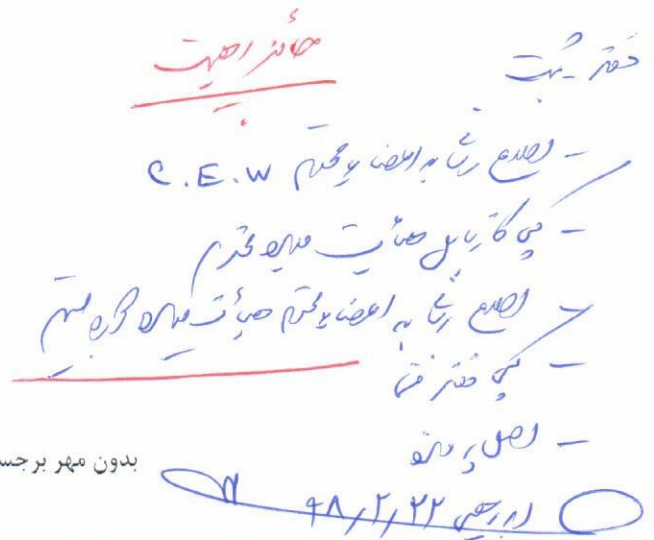 حائز اهمیت
دفتر ثبت
- اطلاع رسانی به اعضای محترم C.E.W
- کپی کارتابل هیأت مدیره محترم
- اطلاع رسانی به اعضای محترم هیأت مدیره
- کپی دفتر فنی
- اصل
بدون مهر برجس
۹۸/۲/۲۲